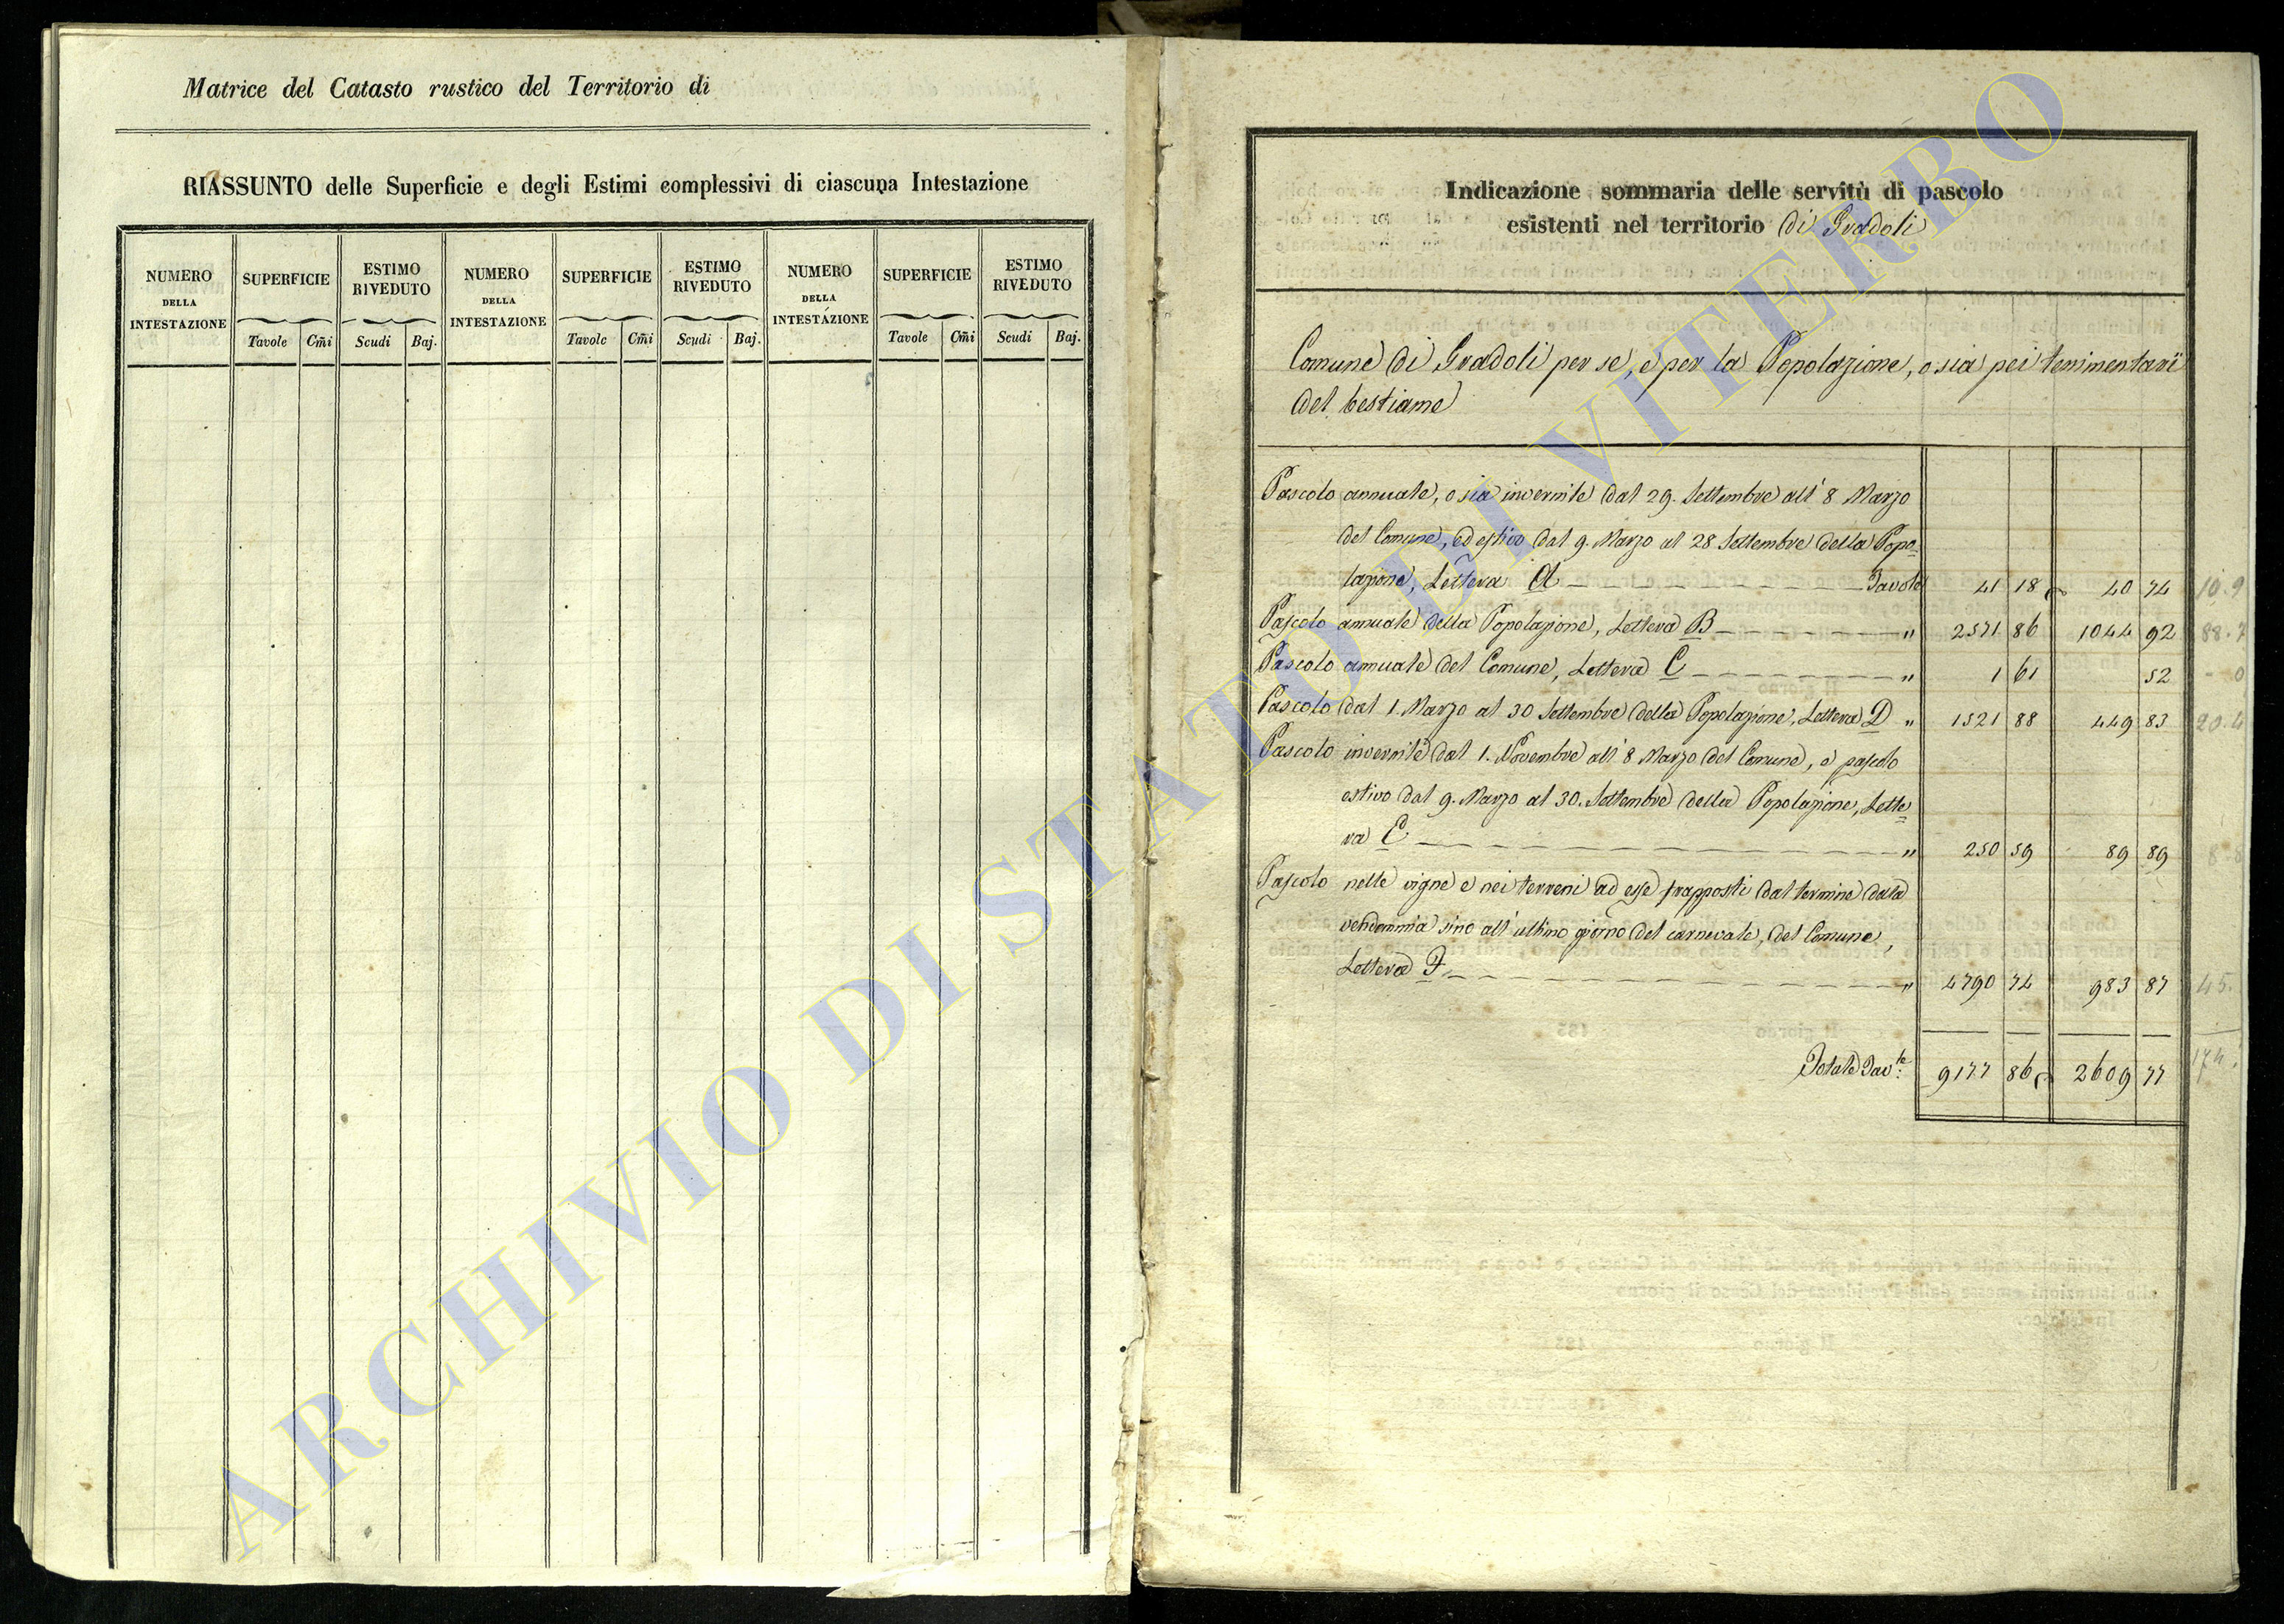 Matrice del Catasto rustico del Territorio di
RIASSUNTO delle Superficie e degli Estimi complessivi di ciascuna Intestazione
NUMERO DELLA INTESTAZIONE SUPERFICIE ESTIMO RIVEDUTO NUMERO DELLA INTESTAZIONE SUPERFICIE ESTIMO RIVEDUTO NUMERO DELLA INTESTAZIONE SUPERFICIE ESTIMO RIVEDUTO
Tavole Cm̃i Scudi Baj. Tavole Cm̃i Scudi Baj. Tavole Cm̃i Scudi Baj.
Indicazione sommaria delle servitù di pascolo
esistenti nel territorio di Gradoli
Comune di Gradoli per se, e per la Popolazione, o sia pei tenimentarj
del bestiame
Pascolo annuale, o sia invernile dal 29. Settembre all' 8 Marzo
del Comune, ed estivo dal 9. Marzo al 28 Settembre della Popo=
lazione, Lettera A Tavole 41 18 40 74 10.9
Pascolo annuale della Popolazione, Lettera B " 2571 86 1044 92 88.7
Pascolo annuale del Comune, Lettera C " 1 61 52 - 0
Pascolo dal 1. Marzo al 30 Settembre della Popolazione, Lettera D " 1521 88 449 83 20.4
Pascolo invernile dal 1. Novembre all' 8 Marzo del Comune, e pascolo
estivo dal 9. Marzo al 30. Settembre della Popolazione, Lette=
ra E " 250 59 89 89 8.8
Pascolo nelle vigne e nei terreni ad esse frapposti dal termine della
vendemmia sino all' ultimo giorno del carnevale, del Comune,
Lettera F " 4790 74 983 87 45.
Totale Tav.le 9177 86 2609 77 174.
ARCHIVIO DI STATO DI VITERBO